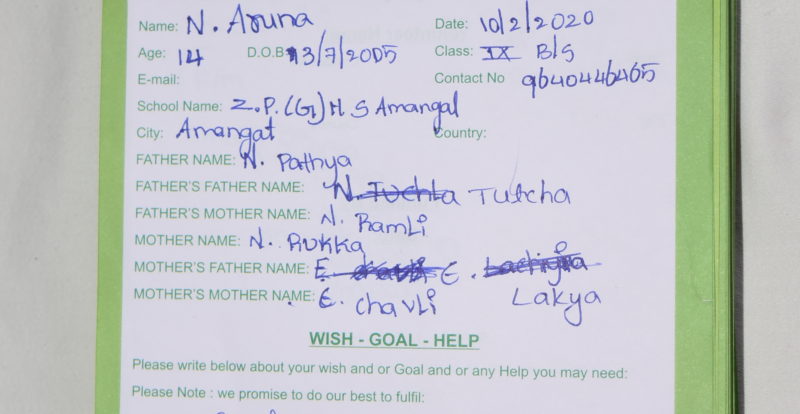 Name: N. Aruna Date: 10/2/2020
Age: 14 D.O.B 13/7/2005 Class: IX B/S
E-mail: Contact No 9640446465
School Name: Z.P.(G) H S Amangal
City: Amangat Country:
FATHER NAME: N. Pathya
FATHER'S FATHER NAME: N. Tuchla Tutcha
FATHER'S MOTHER NAME: N. Ramli
MOTHER NAME: N. Rukka
MOTHER'S FATHER NAME: E. E. Lakya
MOTHER'S MOTHER NAME: E. Chavli
WISH - GOAL - HELP
Please write below about your wish and or Goal and or any Help you may need:
Please Note : we promise to do our best to fulfil: